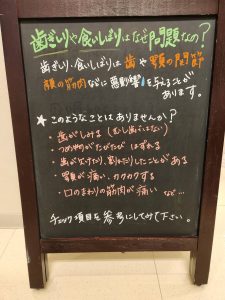 歯ぎしりや食いしばりはなぜ問題なの?
歯ぎしり・食いしばりは歯や顎の関節
顔の筋肉などに悪影響を与えることが
あります。
★このようなことはありませんか?
・歯がしみる(むし歯ではない)
・つめ物がたびたびはずれる
・歯が欠けたり、割れたりしたことがある
・顎が痛い、カクカクする
・口のまわりの筋肉が痛い など…
チェック項目を参考にしてみて下さい。